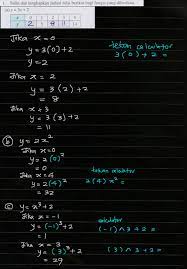 y = 3x + 2
Jika x = 0
y = 3(0) + 2
y = 2
-tekan calculator
3(0) + 2 =
Jika x = 2
y = 3(2) + 2
= 8
Jika x = 3
y = 3(3) + 2
= 11
(b) y = 2x²
Jika x = 0
y = 2(0)²
= 0
Jika x = 4
y = 2(4)²
= 32
tekan calculator
2(4)x² =
(c) y = x³ + 2
Jika x = -1
y = (-1)³ + 2
= 1
calculator
(-1)^3 + 2 =
Jika x = 3
y = (3)³ + 2
= 29
(3)^3 + 2 =